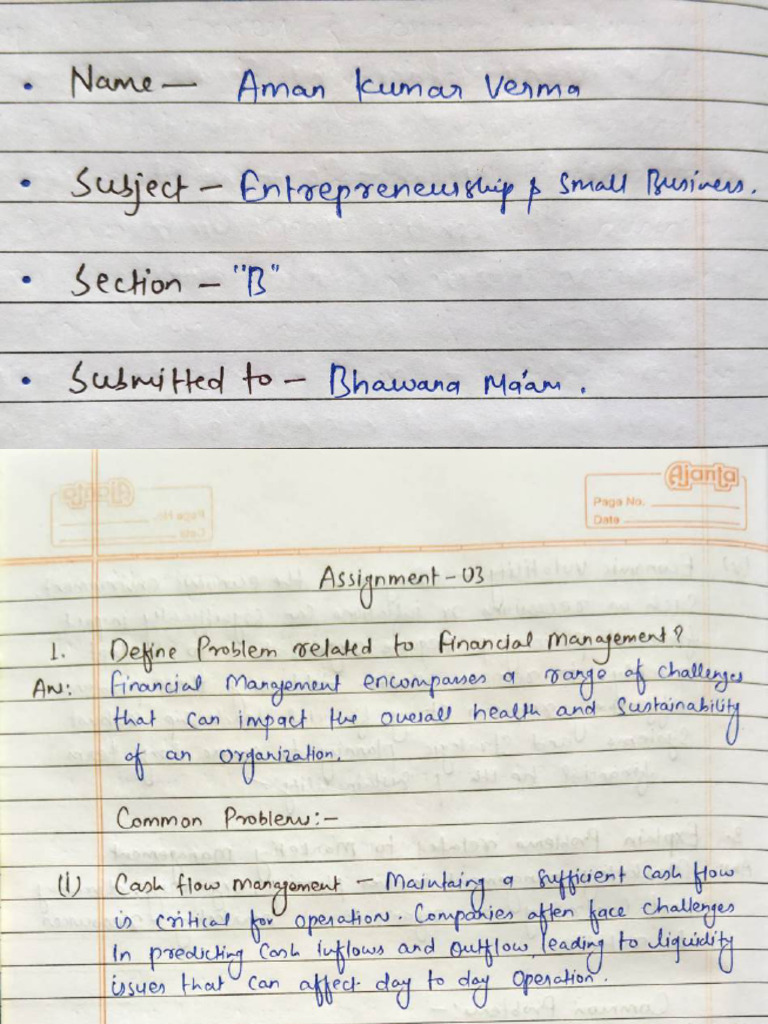 • Name — Aman Kumar Verma
• Subject — Entrepreneurship & Small Business.
• Section — "B"
• Submitted to — Bhawana Ma'am.
Ajanta
Page No.
Date
Assignment - 03
1. Define Problem related to financial management?
An: financial Management encompasses a range of challenges
that can impact the overall health and Sustainability
of an organization.
Common Problem:-
(i) Cash flow management — Maintaing a sufficient cash flow
is critical for operation. Companies often face challenges
In predicting cash inflows and outflow, leading to liquidity
issues that can affect day to day operation.